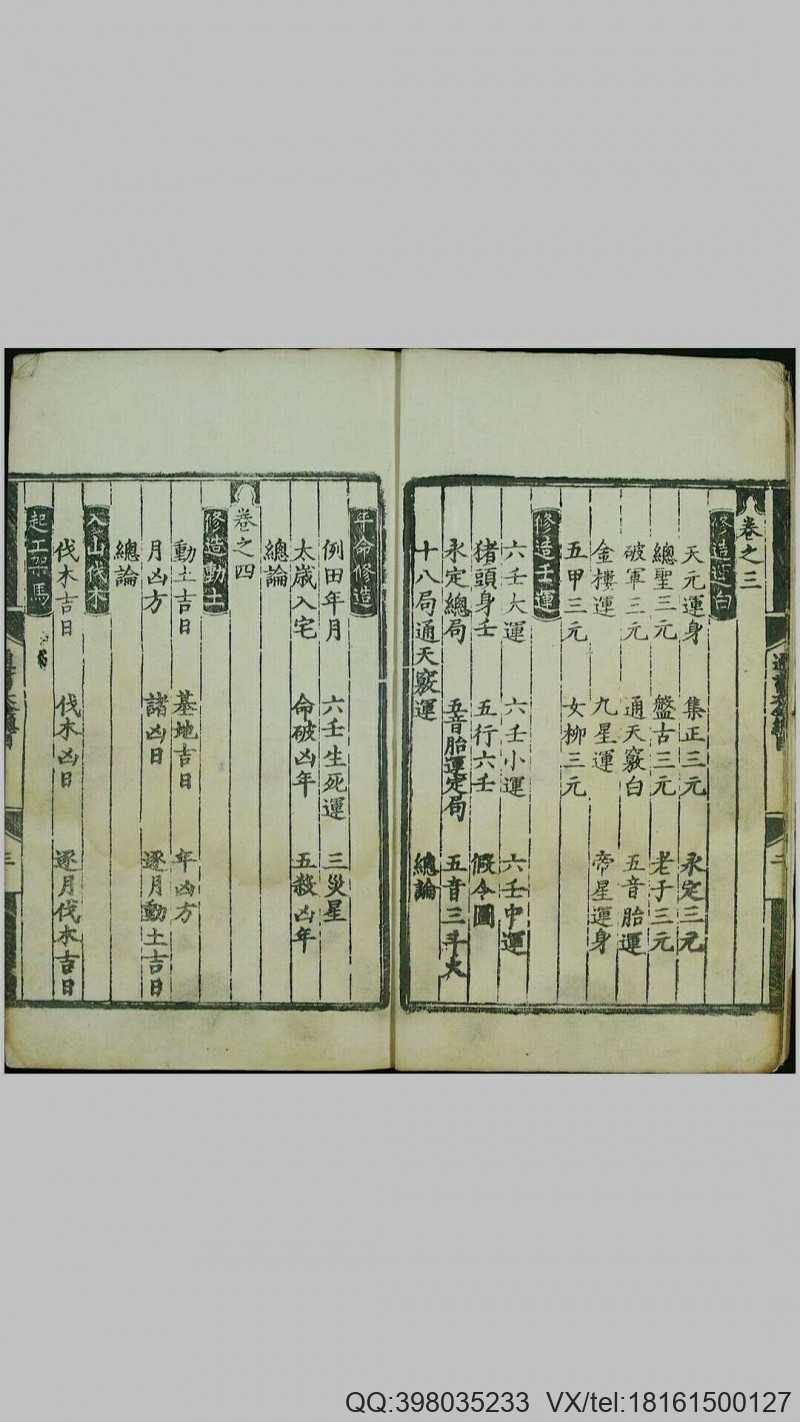 卷之三
修造
天元運身 集正三元 永定三元
總聖三元 盤古三元 老子三元
破軍三元 通天竅白 五音胎運
金樓運 九星運 帝星運身
五甲三元 女柳三元
修造壬運
六壬大運 六壬小運 六壬中運
猪頭身壬 五行六壬 假令圖
永定總局 五音胎運定局 五音三斗大
十八局通天竅運 總論
年命修造
例田年月 六壬生死運 三災星
太歲入宅 命破凶年 五殺凶年
總論
卷之四
修造動土
動土吉日 基地吉日 年凶方
月凶方 諸凶日 逐月動土吉日
總論
入山伐木
伐木吉日 伐木凶日 逐月伐木吉日
起工架馬
二
三
QQ:398035233 VX/tel:18161500127